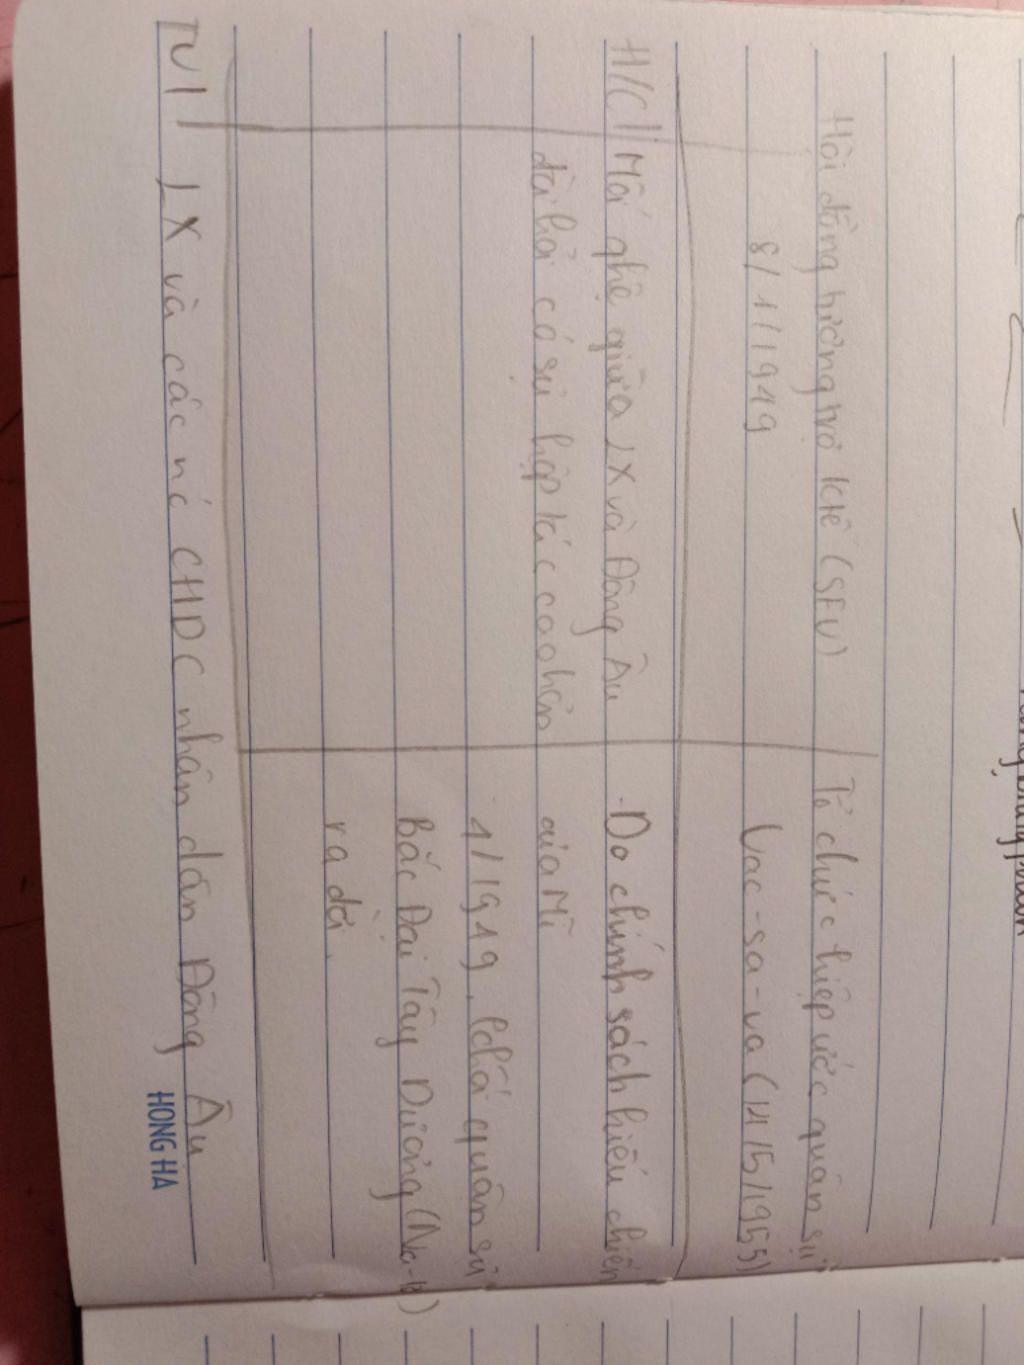 Hội đồng tương trợ Ktế (SEV)
8/1/1949
Tổ chức hiệp ước quân sự
Vac-sa-va (14/5/1955)
H/C
Mối qhệ giữa LX và Đông Âu
đòi hỏi có sự hợp tác cao hơn
- Do chính sách hiếu chiến
của Mĩ
4/1949, khối quân sự
Bắc Đại Tây Dương (Na-to)
ra đời.
TV
LX và các nc CHDC nhân dân Đông Âu
HONG HA